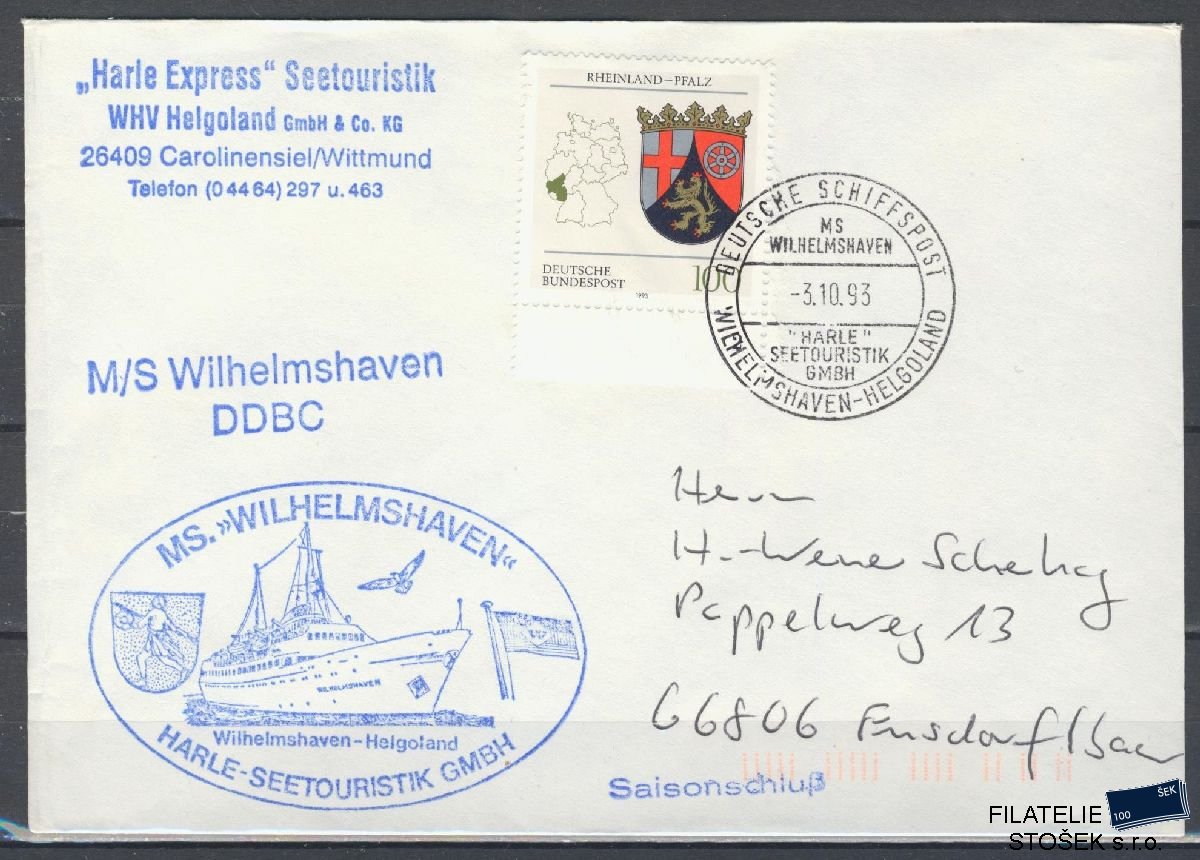 „Harle Express“ Seetouristik
WHV Helgoland GmbH & Co. KG
26409 Carolinensiel/Wittmund
Telefon (0 44 64) 297 u. 463
RHEINLAND-PFALZ
DEUTSCHE
BUNDESPOST
100
1993
DEUTSCHE SCHIFFSPOST
MS
WILHELMSHAVEN
-3.10.93
"HARLE"
SEETOURISTIK
GMBH
WILHELMSHAVEN-HELGOLAND
M/S Wilhelmshaven
DDBC
MS. »WILHELMSHAVEN«
WILHELMSHAVEN
Wilhelmshaven-Helgoland
HARLE-SEETOURISTIK GMBH
Herrn
Pappelweg 13
66806 Ensdorf/Saar
Saisonschluß
100 ŠEK
FILATELIE
STOŠEK s.r.o.